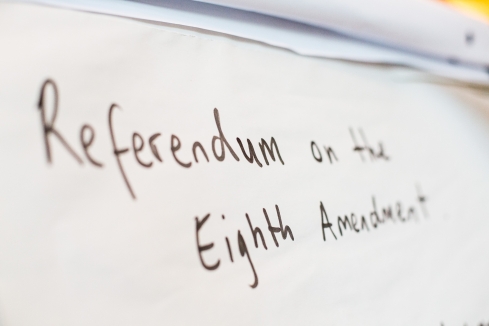 Referendum on the
Eighth Amendment